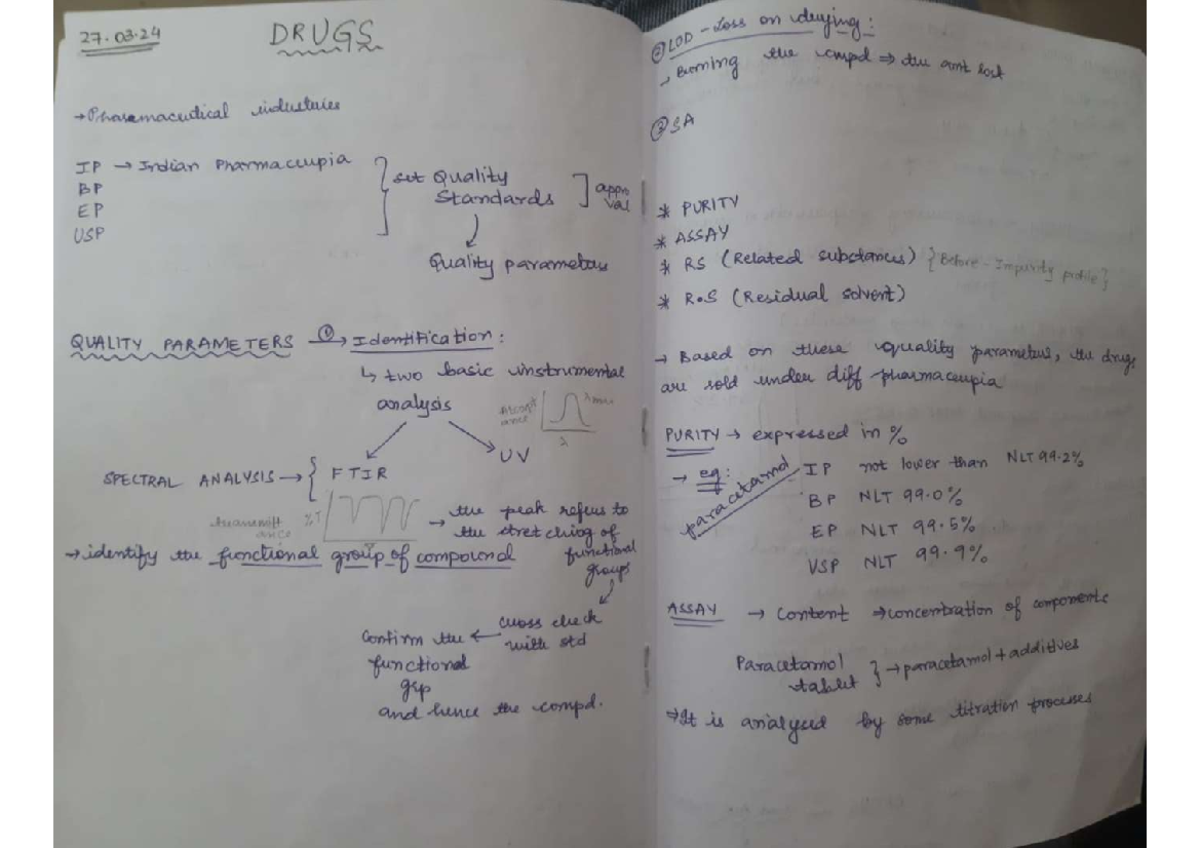 27.03.24
DRUGS
→ Pharamaceutical industries
IP → Indian Pharmaceupia
BP
EP
USP
set Quality
Standards
appro
val
Quality parameters
QUALITY PARAMETERS ① → Identification :
↳ two basic instrumental
analysis
Absorpt
ance
λmax
λ
UV
SPECTRAL ANALYSIS → { FTIR
transmitt
ance
%T
→ the peak refers to
the stretching of
functional
groups
→ identify the functional group of compound
cross check
with std
Confirm the
functional
grp
and hence the compd.
② LOD - Loss on drying :
→ Burning the compd ⇒ the amt lost
③ SA
* PURITY
* ASSAY
* RS (Related substances) {Before - Impurity profile}
* R.S (Residual solvent)
→ Based on these quality parameters, the drugs
are sold under diff pharmaceupia
PURITY → expressed in %
→ eg:
paracetamol
IP not lower than NLT 99.2%
BP NLT 99.0%
EP NLT 99.5%
USP NLT 99.9%
ASSAY → Content ⇒ concentration of components
Paracetamol
tablet } → paracetamol + additives
⇒ It is analysed by some titration processes